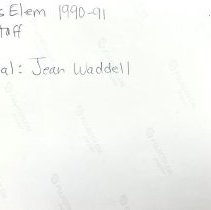 s Elem 1990-91
taff
al: Jean Waddell